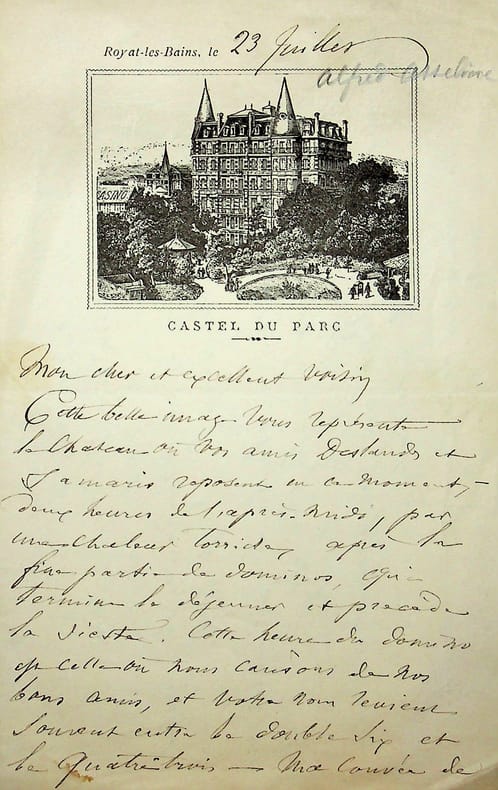 Royat-les-Bains, le 23 Juillet
Alfred Asseline
CASINO
CASTEL DU PARC
Mon cher et excellent voisin
Cette belle image vous représente
le Chateau où vos amis Deslandes et
Samarie reposent en ce moment,
deux heures de l'après-midi, par
une chaleur torride, après la
fine partie de dominos, qui
termine le déjeuner et précède
la sieste. Cette heure du domino
est celle où nous causons de nos
bons amis, et votre nom revient
souvent entre le double six et
le quatre trois — Ma couvée de